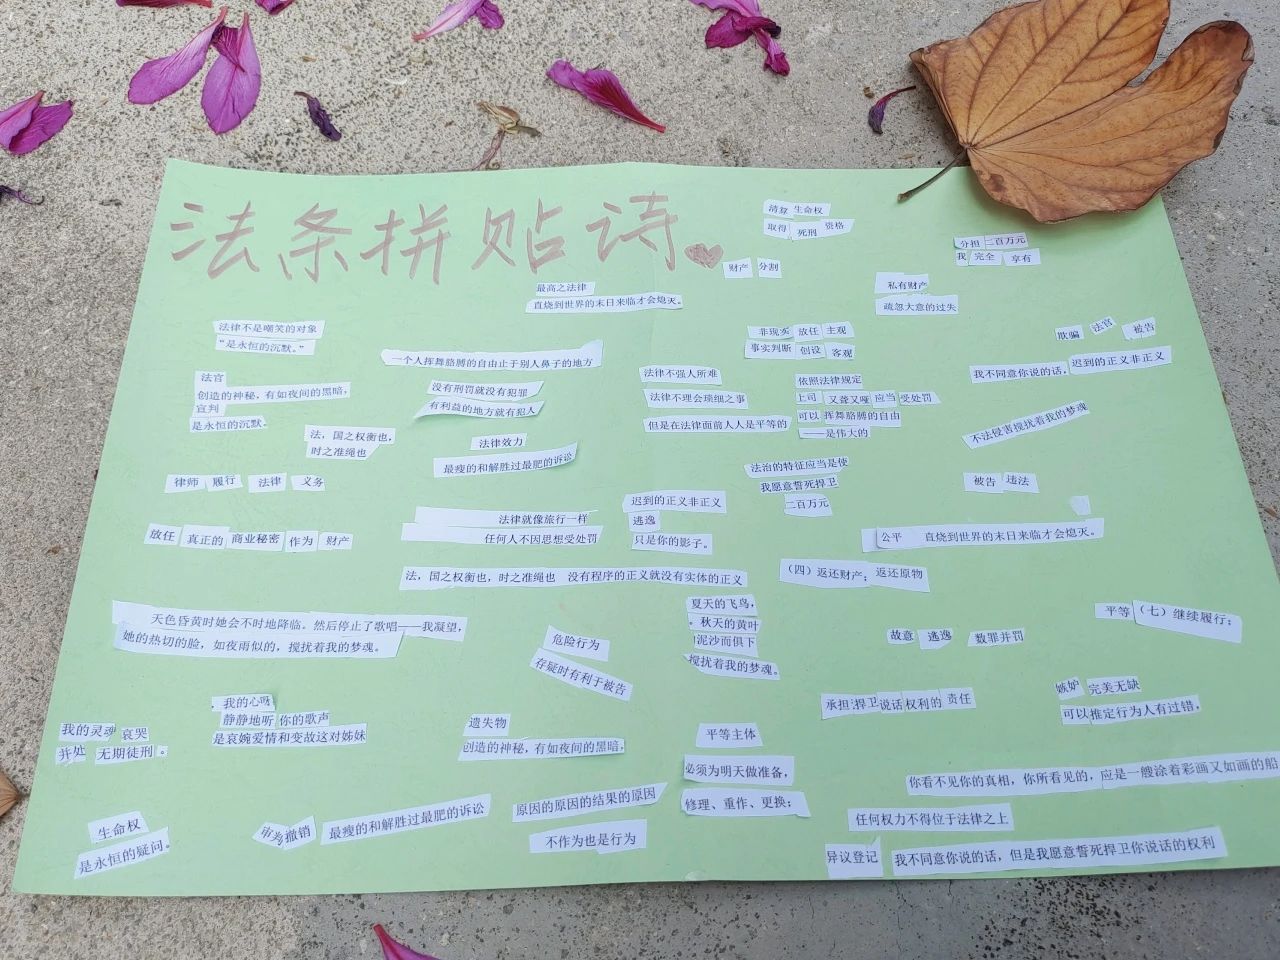 法条拼贴诗
清算 生命权
取得 死刑 资格
分担 二百万元
我 完全 享有
财产 分割
最高之法律
直烧到世界的末日来临才会熄灭。
私有财产
疏忽大意的过失
法律不是嘲笑的对象
“是永恒的沉默。”
非现实 放任 主观
事实判断 创设 客观
欺骗 法官 被告
一个人挥舞胳膊的自由止于别人鼻子的地方
我不同意你说的话, 迟到的正义非正义
法官
创造的神秘,有如夜间的黑暗,
宣判
是永恒的沉默。
没有刑罚就没有犯罪
有利益的地方就有犯人
法律不强人所难
法律不理会琐细之事
但是在法律面前人人是平等的
依照法律规定
上司 又聋又哑 应当 受处罚
可以 挥舞胳膊的自由
——是伟大的
不法侵害搅扰着我的梦魂
法,国之权衡也,
时之准绳也
法律效力
最瘦的和解胜过最肥的诉讼
法治的特征应当是使
我愿意誓死捍卫
二百万元
律师 履行 法律 义务
被告 违法
迟到的正义非正义
逃逸
只是你的影子。
法律就像旅行一样
任何人不因思想受处罚
放任 真正的 商业秘密 作为 财产
公平 直烧到世界的末日来临才会熄灭。
法,国之权衡也,时之准绳也 没有程序的正义就没有实体的正义
(四)返还财产; 返还原物
天色昏黄时她会不时地降临。然后停止了歌唱——我凝望,
她的热切的脸,如夜雨似的,搅扰着我的梦魂。
夏天的飞鸟,
。秋天的黄叶
泥沙而俱下
搅扰着我的梦魂。
危险行为
存疑时有利于被告
故意 逃逸 数罪并罚
平等 (七)继续履行;
我的心呀
静静地听 你的歌声
是哀婉爱情和变故这对姊妹
我的灵魂 哀哭
我处 无期徒刑 。
遗失物
创造的神秘,有如夜间的黑暗,
平等主体
必须为明天做准备,
修理、重作、更换;
承担 捍卫说话权利的 责任
嫉妒 完美无缺
可以推定行为人有过错,
你看不见你的真相,你所看见的,应是一艘涂着彩画又如画的船
生命权
是永恒的疑问。
撤销 最瘦的和解胜过最肥的诉讼
原因的原因的结果的原因
不作为也是行为
任何权力不得位于法律之上
异议登记 我不同意你说的话,但是我愿意誓死捍卫你说话的权利